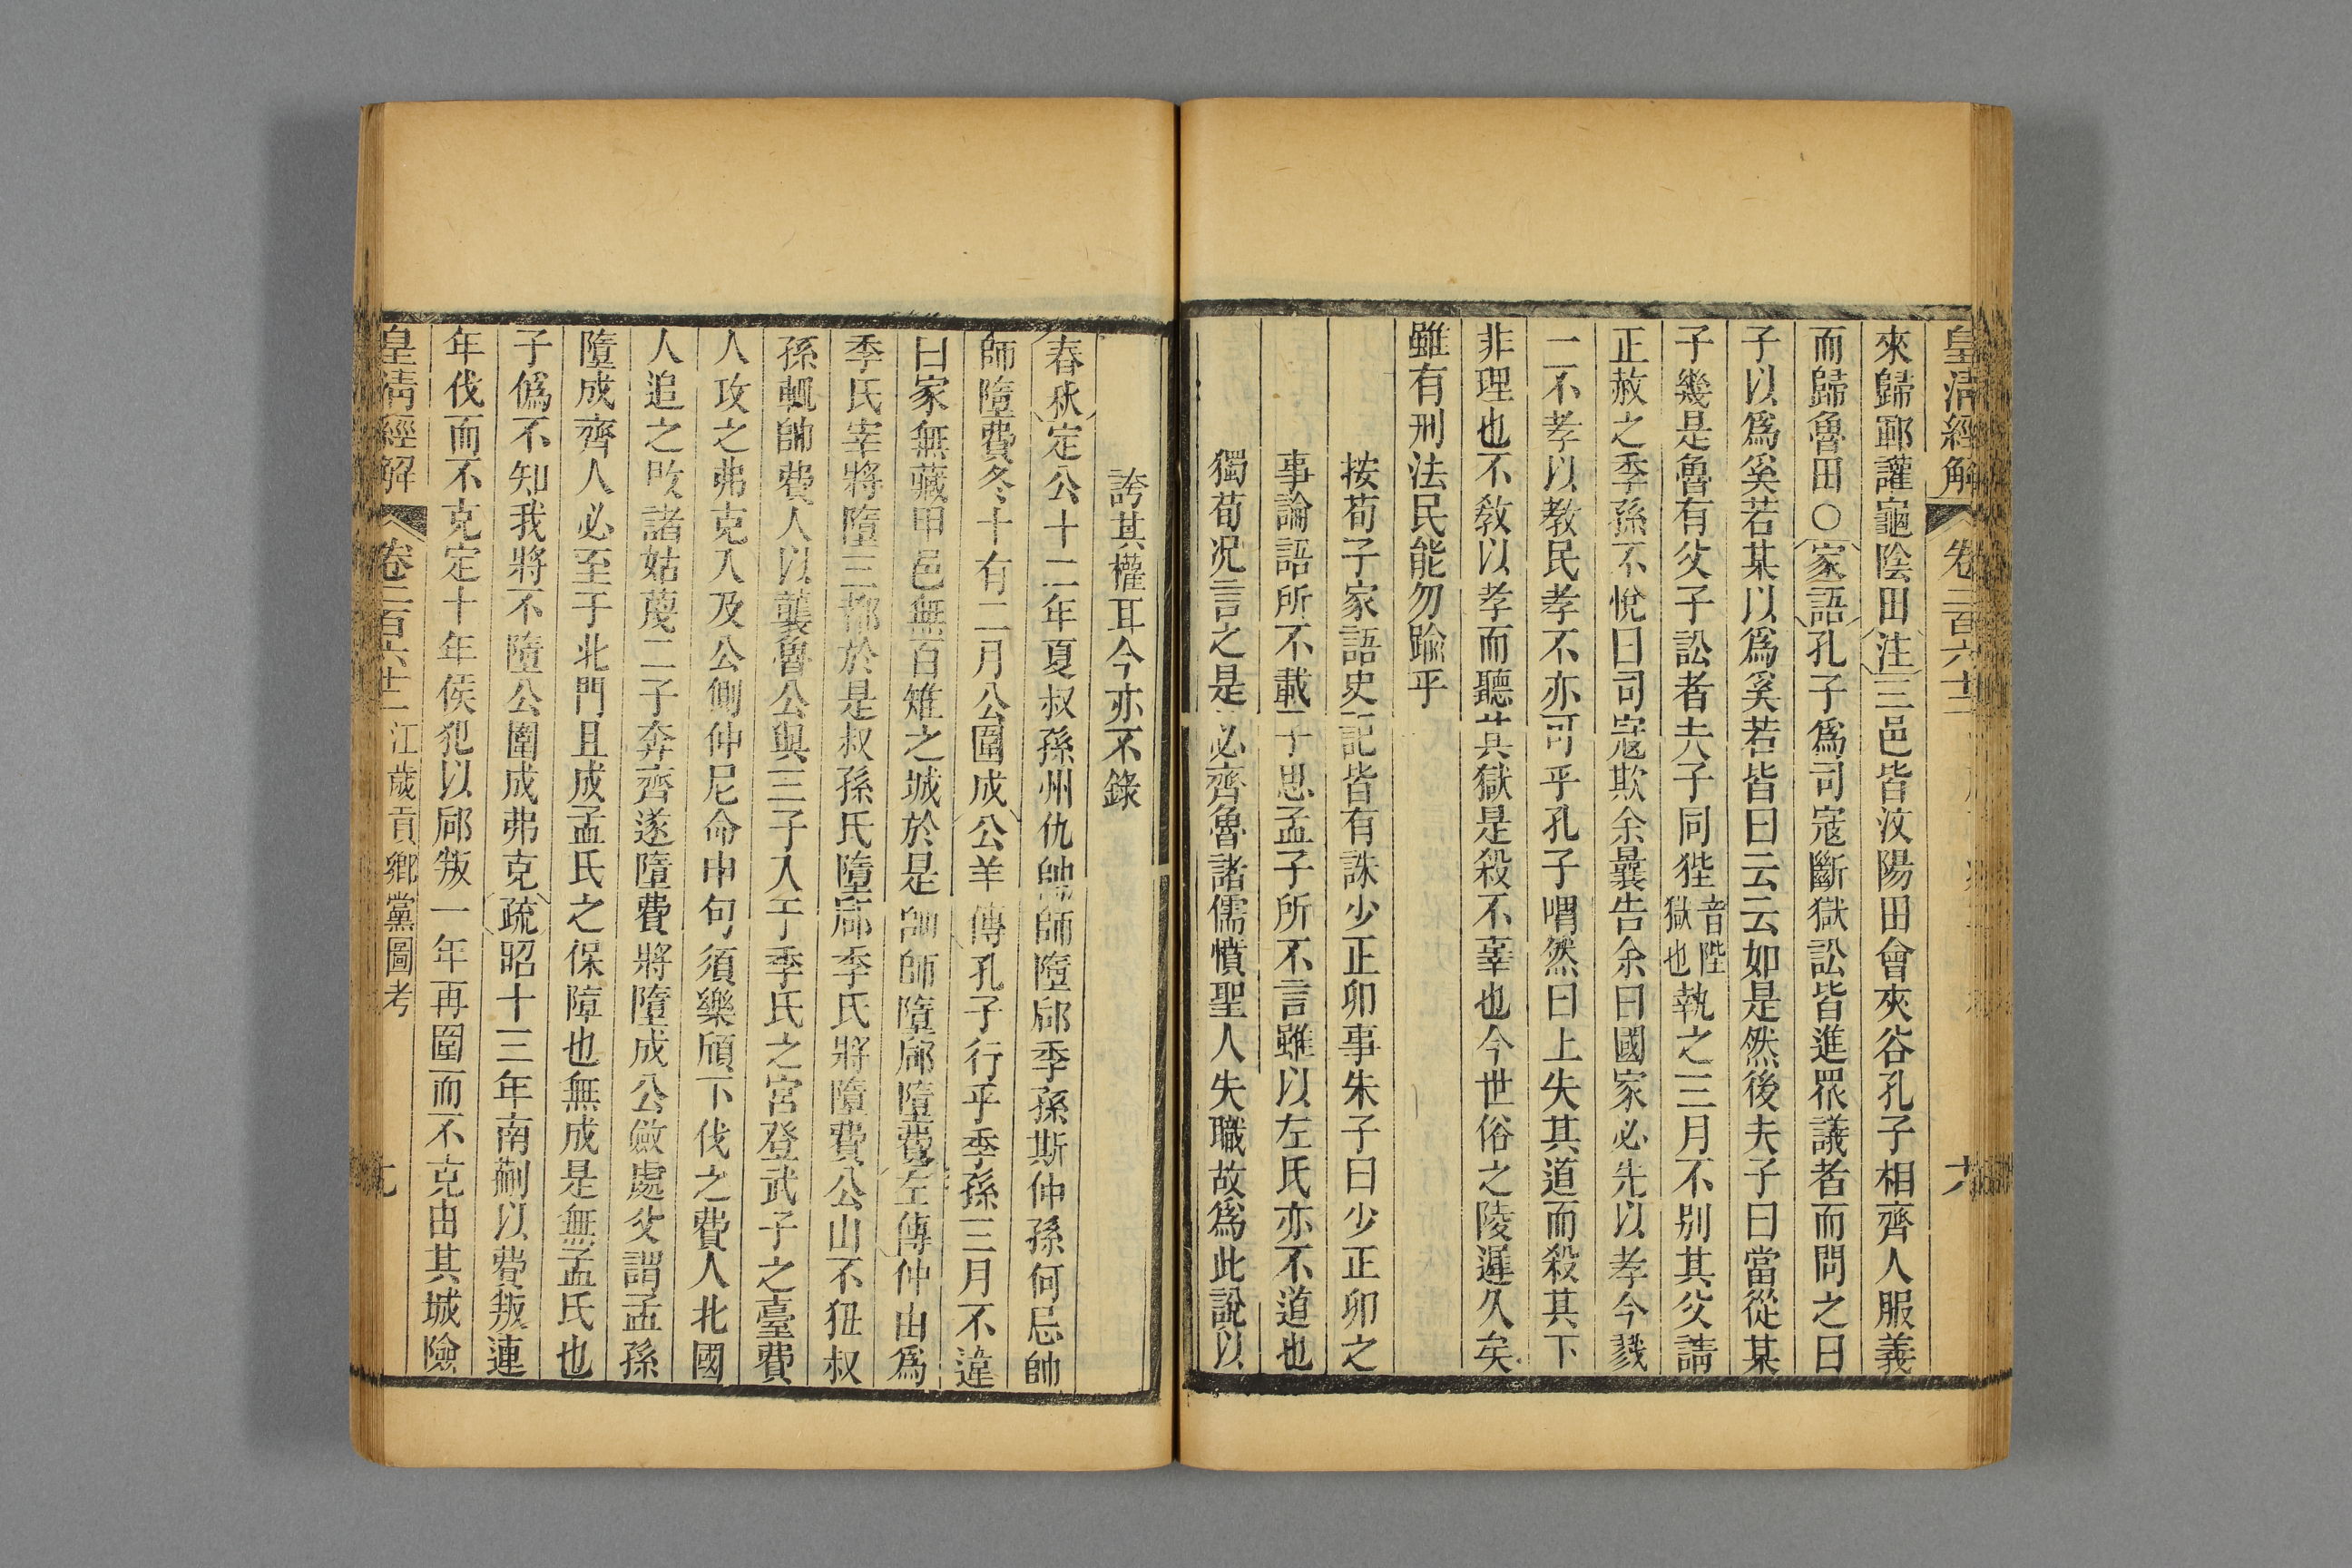 皇清經解 卷二百六十二
來歸鄆讙龜陰田注三邑皆汶陽田會夾谷孔子相齊人服義
而歸魯田○家語孔子爲司寇斷獄訟皆進眾議者而問之曰
子以爲奚若某以爲奚若皆曰云云如是然後夫子曰當從某
子幾是魯有父子訟者夫子同狴音陛獄也執之三月不别其父請
正赦之季孫不悅曰司寇欺余曩告余曰國家必先以孝今戮
一不孝以教民孝不亦可乎孔子喟然曰上失其道而殺其下
非理也不敎以孝而聽其獄是殺不辜也今世俗之陵遲久矣
雖有刑法民能勿踰乎
按荀子家語史記皆有誅少正卯事朱子曰少正卯之
事論語所不載子思孟子所不言雖以左氏亦不道也
獨荀況言之是必齊魯諸儒憤聖人失職故爲此說以
誇其權耳今亦不錄
春秋定公十二年夏叔孫州仇帥師隳郈季孫斯仲孫何忌帥
師墮費冬十有二月公圍成公羊傳孔子行乎季孫三月不違
曰家無藏甲邑無百雉之城於是帥師墮郈墮費左傳仲由爲
季氏宰將墮三都於是叔孫氏墮郈季氏將墮費公山不狃叔
孫輒帥費人以襲魯公與三子入于季氏之宮登武子之臺費
人攻之弗克入及公側仲尼命申句須樂頎下伐之費人北國
人追之敗諸姑蔑二子奔齊遂墮費將墮成公斂處父謂孟孫
墮成齊人必至于北門且成孟氏之保障也無成是無孟氏也
子僞不知我將不墮公圍成弗克疏昭十三年南蒯以費叛連
年伐而不克定十年侯犯以郈叛一年再圍而不克由其城險
皇清經解 卷二百六十二 江歲貢鄉黨圖考